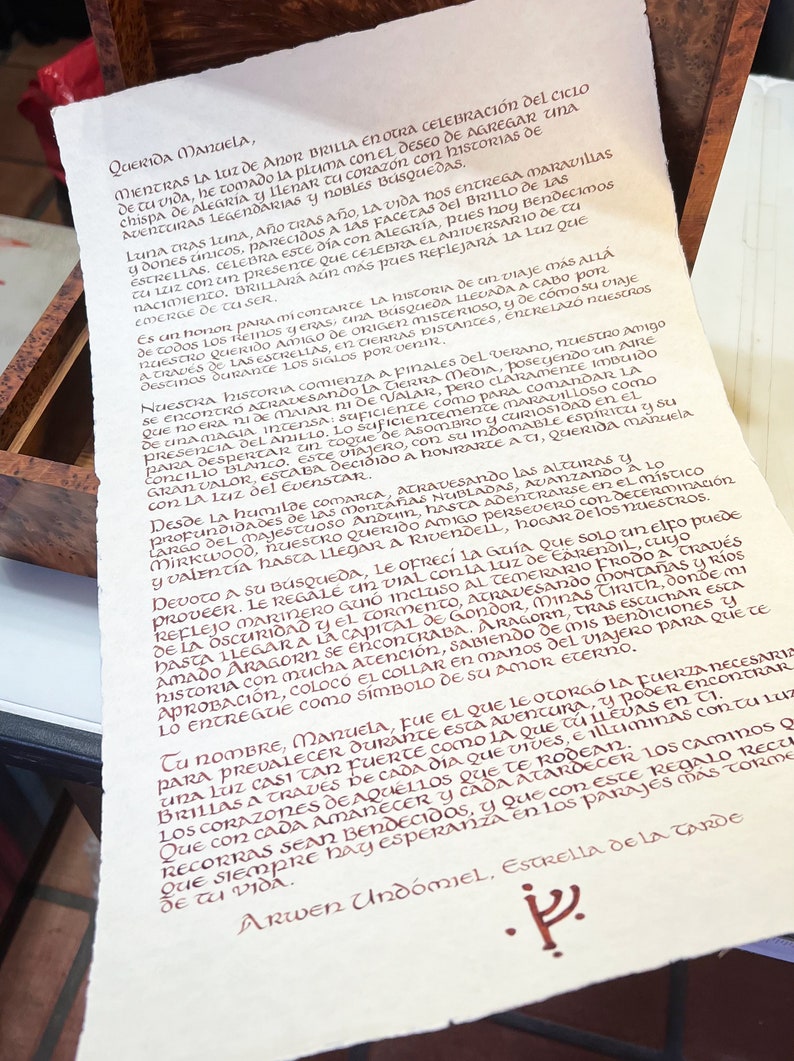 Querida Manuela,
Mientras la luz de Anor brilla en otra celebración del ciclo
de tu vida, he tomado la pluma con el deseo de agregar una
chispa de alegría y llenar tu corazón con historias de
aventuras legendarias y nobles búsquedas.
Luna tras luna, año tras año, la vida nos entrega maravillas
y dones únicos, parecidos a las facetas del brillo de las
estrellas. Celebra este día con alegría, pues hoy bendecimos
tu luz con un presente que celebra el aniversario de tu
nacimiento. Brillará aún más pues reflejará la luz que
emerge de tu ser.
Es un honor para mí contarte la historia de un viaje más allá
de todos los reinos y eras; una búsqueda llevada a cabo por
nuestro querido amigo de origen misterioso, y de cómo su viaje
a través de las estrellas, en tierras distantes, entrelazó nuestros
destinos durante los siglos por venir.
Nuestra historia comienza a finales del verano, nuestro amigo
se encontró atravesando la Tierra Media, poseyendo un aire
que no era ni de Maiar ni de Valar, pero claramente imbuido
de una magia intensa: suficiente como para comandar la
presencia del anillo. Lo suficientemente maravilloso como
para despertar un toque de asombro y curiosidad en el
Concilio Blanco. Este viajero, con su indomable espíritu y su
gran valor, estaba decidido a honrarte a ti, querida Manuela
con la luz del Evenstar.
Desde la humilde comarca, atravesando las alturas y
profundidades de las Montañas Nubladas, avanzando a lo
largo del majestuoso Anduin, hasta adentrarse en el místico
Mirkwood, nuestro querido amigo perseveró con determinación
y valentía hasta llegar a Rivendell, hogar de los nuestros.
Devoto a su búsqueda, le ofrecí la guía que solo un elfo puede
proveer. Le regalé un vial con la luz de Eärendil, cuyo
reflejo marinero guió incluso al temerario Frodo a través
de la oscuridad y el tormento, atravesando montañas y ríos
hasta llegar a la capital de Gondor, Minas Tirith, donde mi
amado Aragorn se encontraba. Aragorn, tras escuchar esta
historia con mucha atención, sabiendo de mis bendiciones y
aprobación, colocó el collar en manos del viajero para que te
lo entregue como símbolo de su amor eterno.
Tu nombre, Manuela, fue el que le otorgó la fuerza necesaria
para prevalecer durante esta aventura, y poder encontrar
una luz casi tan fuerte como la que tú llevas en ti.
Brillas a través de cada día que vives, e iluminas con tu luz
los corazones de aquellos que te rodean.
Que con cada amanecer y cada atardecer los caminos q
recorras sean bendecidos, y que con este regalo recu
que siempre hay esperanza en los parajes más torme
de tu vida.
Arwen Undómiel, Estrella de la Tarde